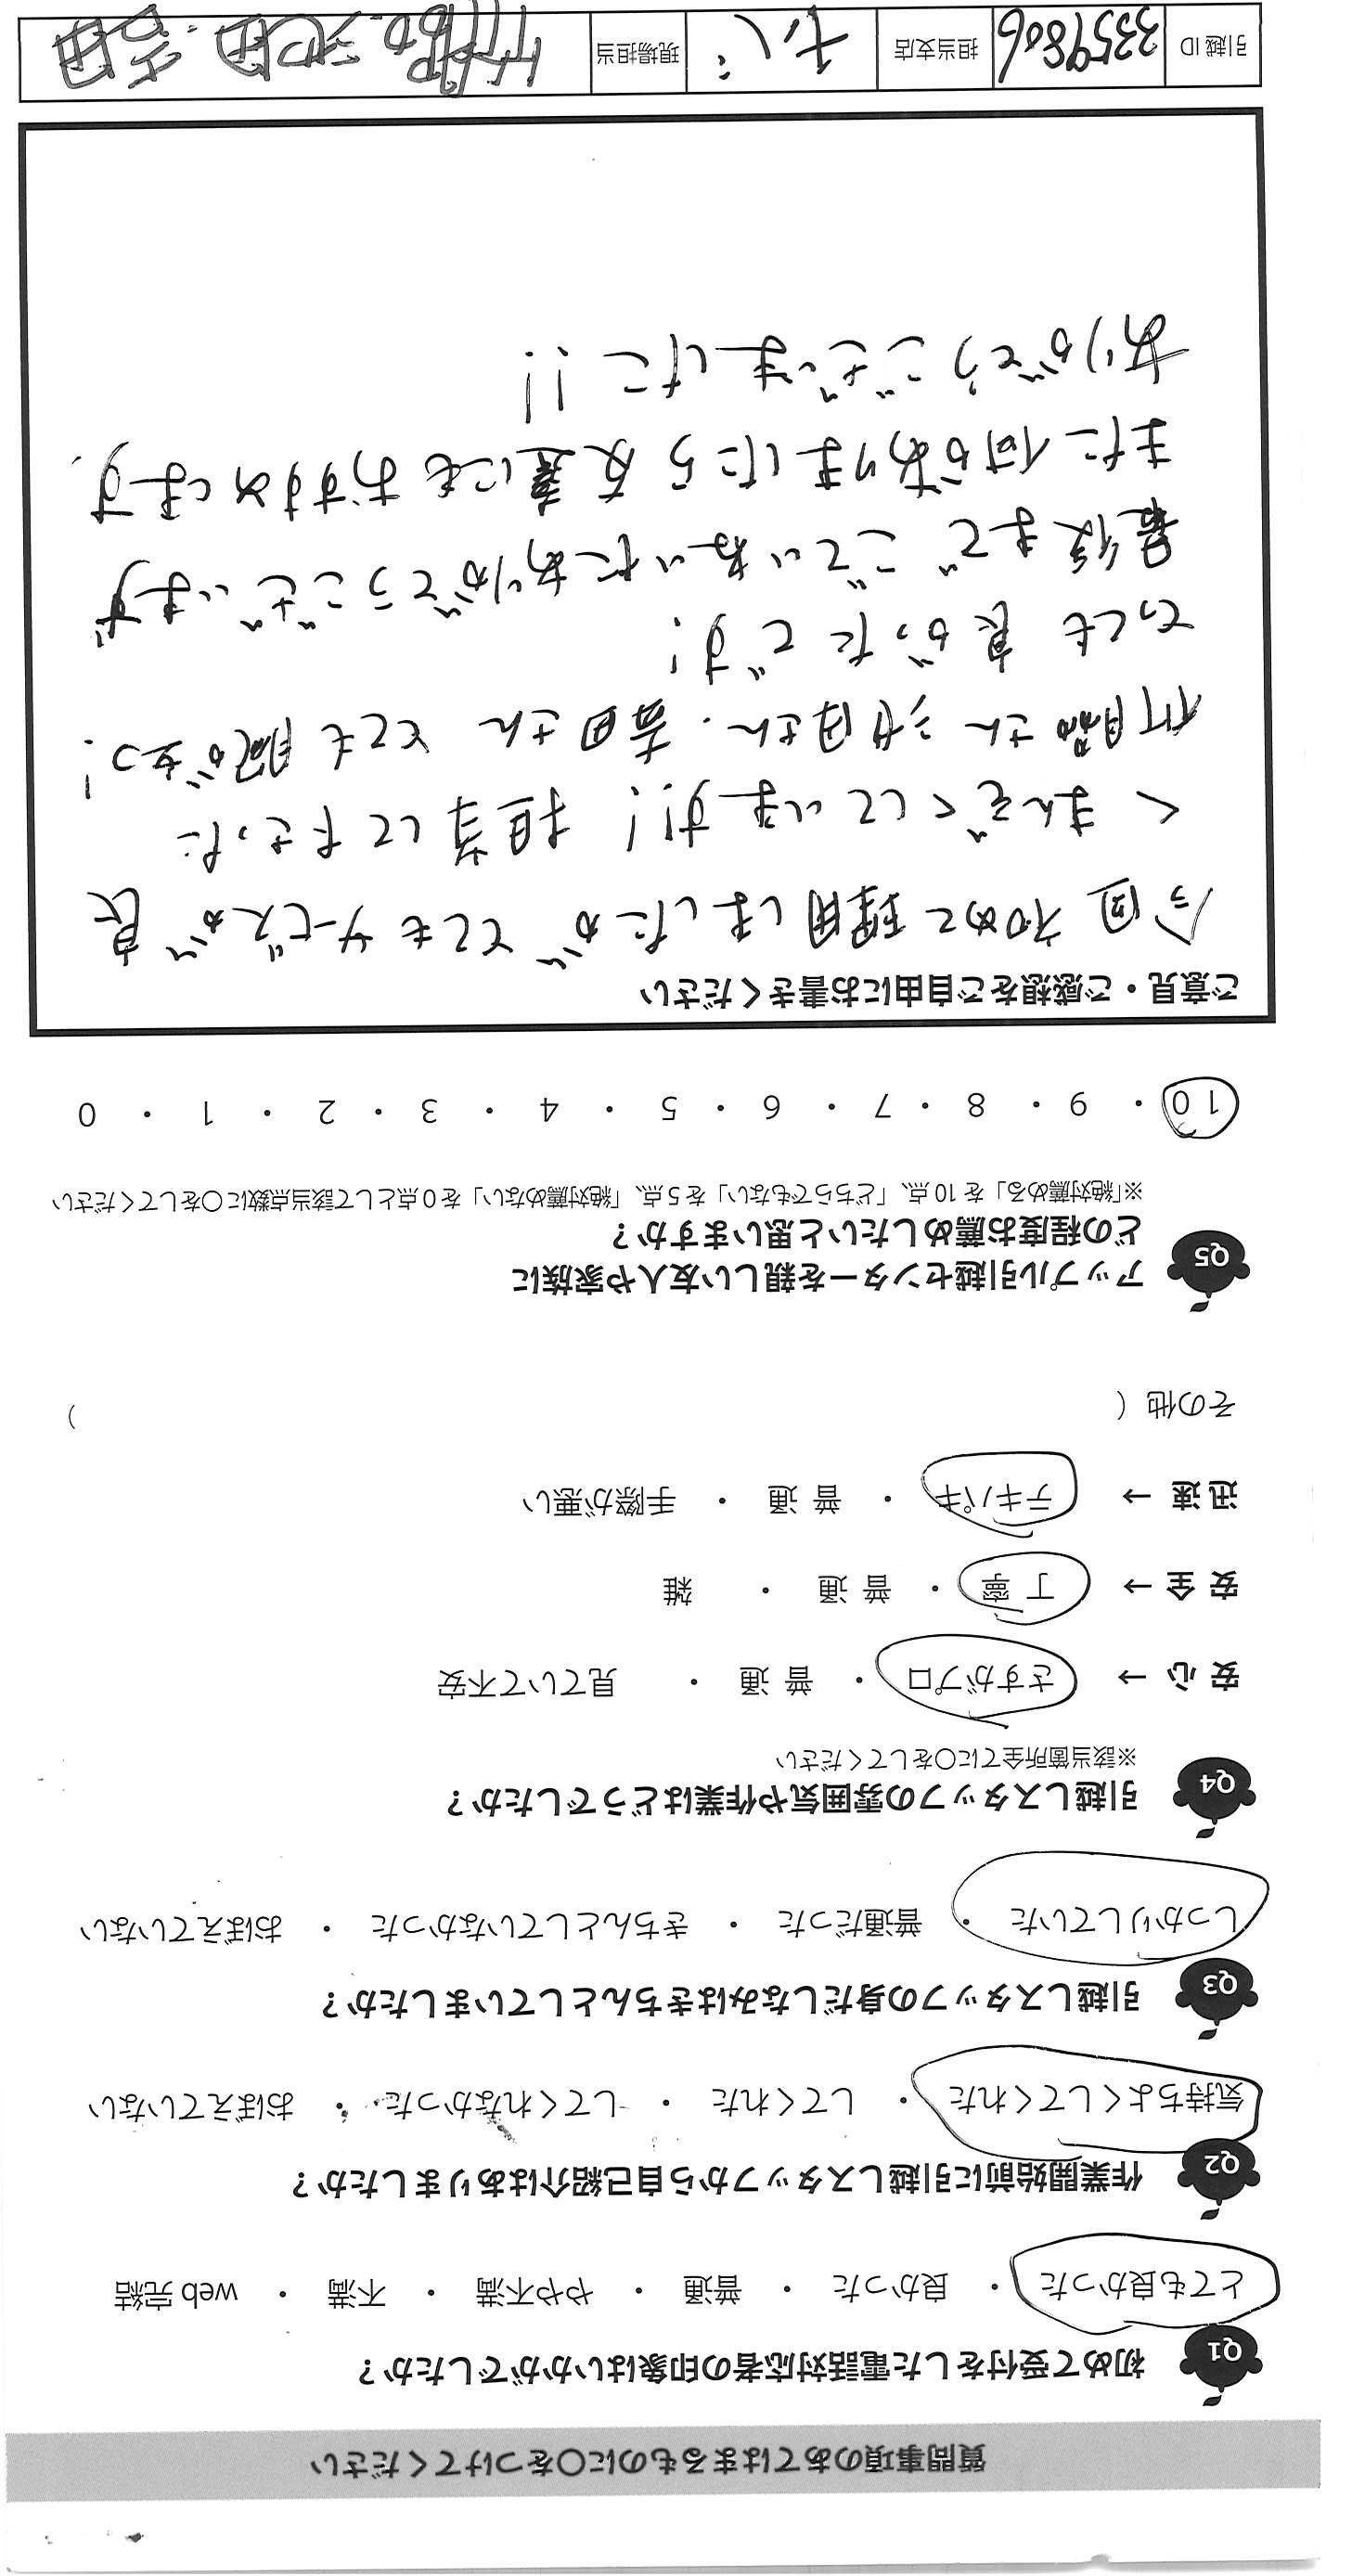 質問事項のあてはまるものに○をつけてください
Q1 初めて受付をした電話対応者の印象はいかがでしたか？
とても良かった ・ 良かった ・ 普通 ・ やや不満 ・ 不満 ・ web 完結
Q2 作業開始前に引越しスタッフから自己紹介はありましたか？
気持ちよくしてくれた ・ してくれた ・ してくれなかった ・ おぼえていない
Q3 引越しスタッフの身だしなみはきちんとしていましたか？
しっかりしていた ・ 普通だった ・ きちんとしていなかった ・ おぼえていない
Q4 引越しスタッフの雰囲気や作業はどうでしたか？
※該当箇所全てに○をしてください
安 心 → さすがプロ ・ 普 通 ・ 見ていて不安
安 全 → 丁 寧 ・ 普 通 ・ 雑
迅 速 → テキパキ ・ 普 通 ・ 手際が悪い
その他（ ）
Q5 アップル引越センターを親しい友人や家族に
どの程度お薦めしたいと思いますか？
※「絶対薦める」を 10 点、「どちらでもない」を 5 点、「絶対薦めない」を 0 点として該当点数に○をしてください
10 ・ 9 ・ 8 ・ 7 ・ 6 ・ 5 ・ 4 ・ 3 ・ 2 ・ 1 ・ 0
ご意見・ご感想をご自由にお書きください
今回 初めて 理用しましたが とてもサービスが 良
く まんぞくしています!! 担当して下さった
さん さん、吉田さん とても 腕が立つ！
とても 良かったです！
最後まで ごていねいに ありがとうございます
また何かありましたら 友達にもおすすめします。
ありがとうございました !!
引越 ID 3359806 担当支店 現場担当 吉田